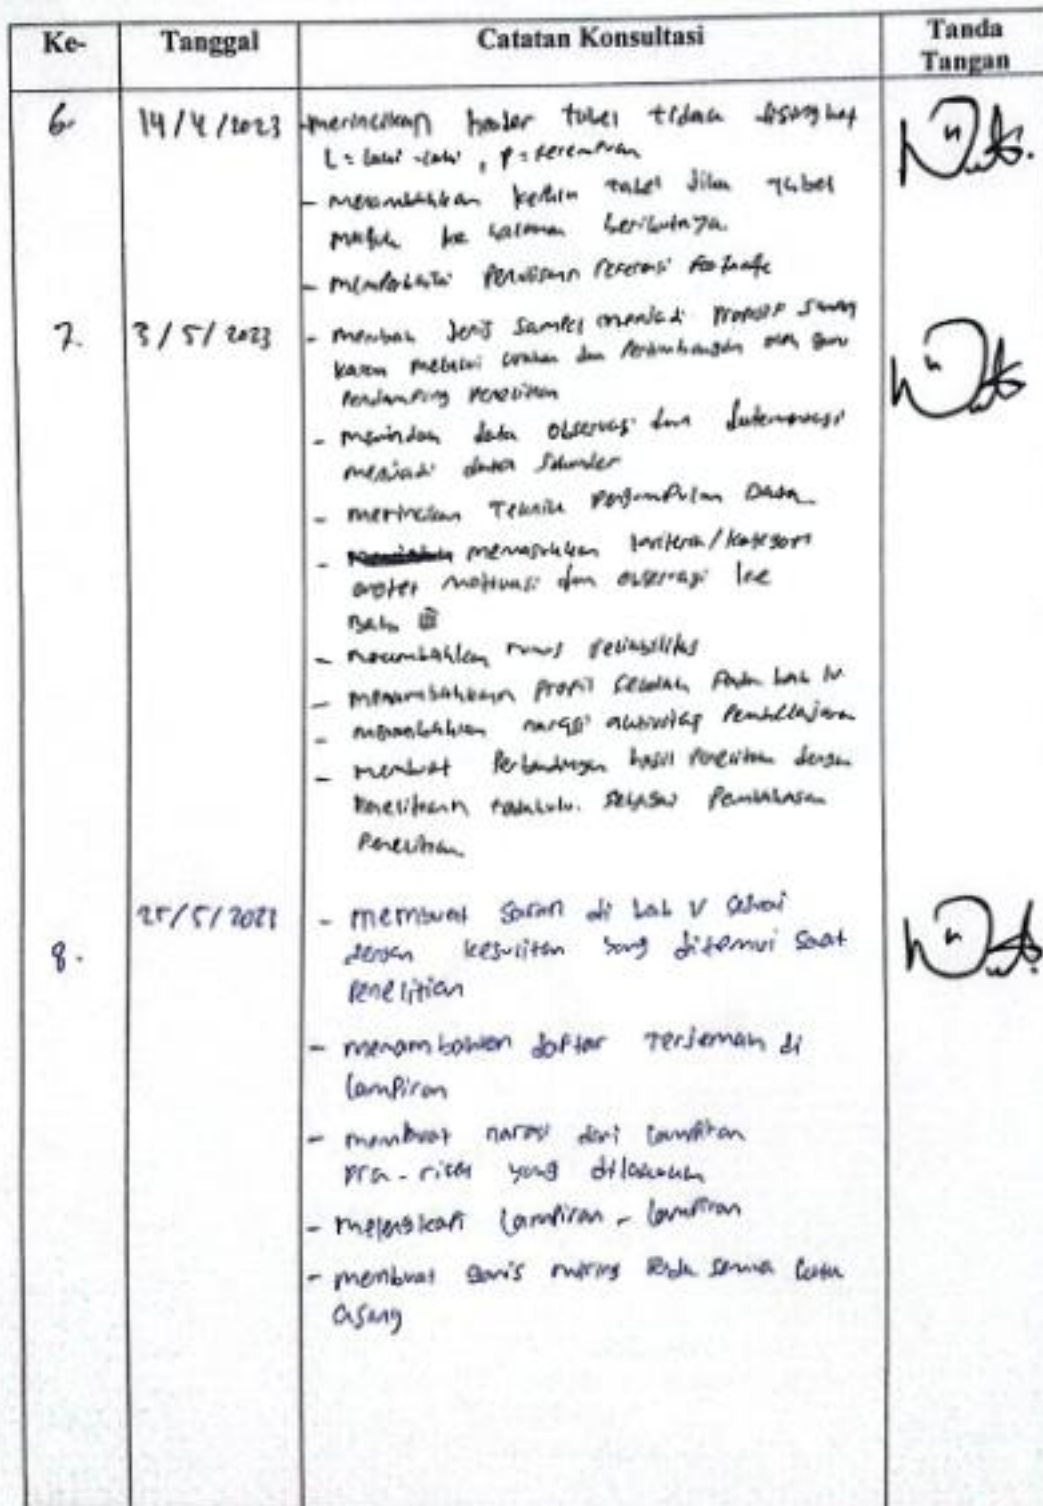 Ke- Tanggal Catatan Konsultasi Tanda Tangan
6. 14/4/2023 - merincikan header tabel tidak disingkat
L = laki-laki, P = Perempuan
- menambahkan tabel jika tabel
ke halaman berikutnya
- memperbaiki Penulisan referensi footnote
7. 3/5/2023 - jenis sampel menjadi
karena melalui dan Pertimbangan oleh guru
Pendamping Penelitian
- data observasi dan dokumentasi
menjadi data Sekunder
- merincikan Teknik Pengumpulan Data
- memasukkan kriteria/kategori
motivasi dan observasi ke
Bab III
- menambahkan rumus reliabilitas
- menambahkan Profil Sekolah Pada bab IV
- menambahkan narasi aktivitas Pembelajaran
- membuat Perbandingan hasil Penelitian dengan
Penelitian terdahulu. Sebagai Pembahasan
Penelitian
8. 25/5/2023 - membuat Saran di bab V Sesuai
dengan kesulitan yang ditemui Saat
Penelitian
- menambahkan daftar Terjemah di
lampiran
- membuat narasi dari lampiran
pra-riset yang dilakukan
- melengkapi lampiran - lampiran
- membuat garis miring Pada semua kata
asing